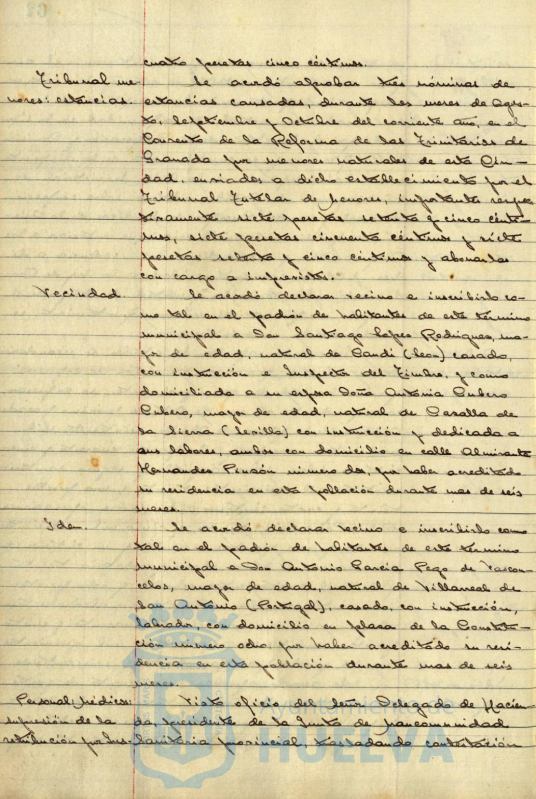 cuatro pesetas cinco céntimos.
Tribunal me- Se acordó aprobar tres nóminas de
nores: estancias. estancias causadas, durante los meses de Agos-
to, Septiembre y Octubre del corriente año, en el
Convento de la Reforma de las Trinitarias de
Granada por menores naturales de esta Ciu-
dad, enviados a dicho establecimiento por el
Tribunal Tutelar de Menores, importantes respec-
tivamente siete pesetas setenta y cinco cénti-
mos, siete pesetas cincuenta céntimos y siete
pesetas setenta y cinco céntimos y abonarlas
con cargo a imprevistos.
Vecindad. Se acordó declarar vecino e inscribirlo co-
mo tal en el padrón de habitantes de este término
municipal a Don Santiago López Rodriguez, ma-
yor de edad, natural de (León) casado,
con instrucción e Inspector del Timbre, y como
domiciliada a su esposa Doña Antonia Cubero
Cubero, mayor de edad, natural de Cazalla de
la Sierra (Sevilla) con instrucción y dedicada a
sus labores, ambos con domicilio en calle Almirante
Hernandez Pinzón número dos, por haber acreditado
su residencia en esta población durante mas de seis
meses.
Idem. Se acordó declarar vecino e inscribirlo como
tal en el padrón de habitantes de este término
municipal a Don Antonio Garcia Pego de Vascon-
celos, mayor de edad, natural de Villarreal de
San Antonio (Portugal), casado, con instrucción,
labrador, con domicilio en plaza de la Constitu-
ción número ocho, por haber acreditado su resi-
dencia en esta población durante mas de seis
meses.
Personal médico: Visto oficio del Señor Delegado de Hacien-
supresión de la da, Presidente de la Junta de Mancomunidad
retribución por Ins- Sanitaria provincial, trasladando contestación
HUELVA